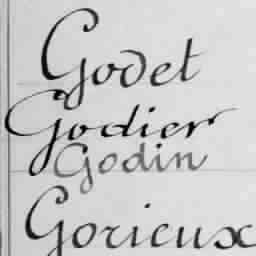 Godet
Godier
Godin
Gorieux